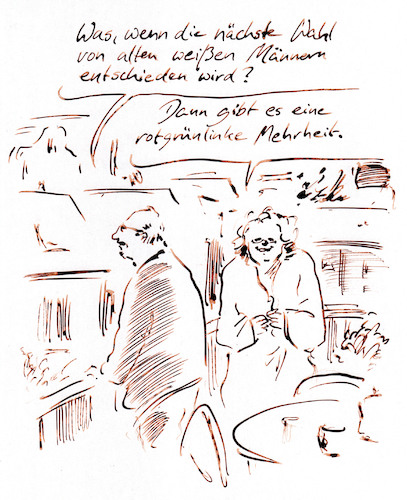 Was, wenn die nächste Wahl
von alten weißen Männern
entschieden wird?
Dann gibt es eine
rotgrünlinke Mehrheit.